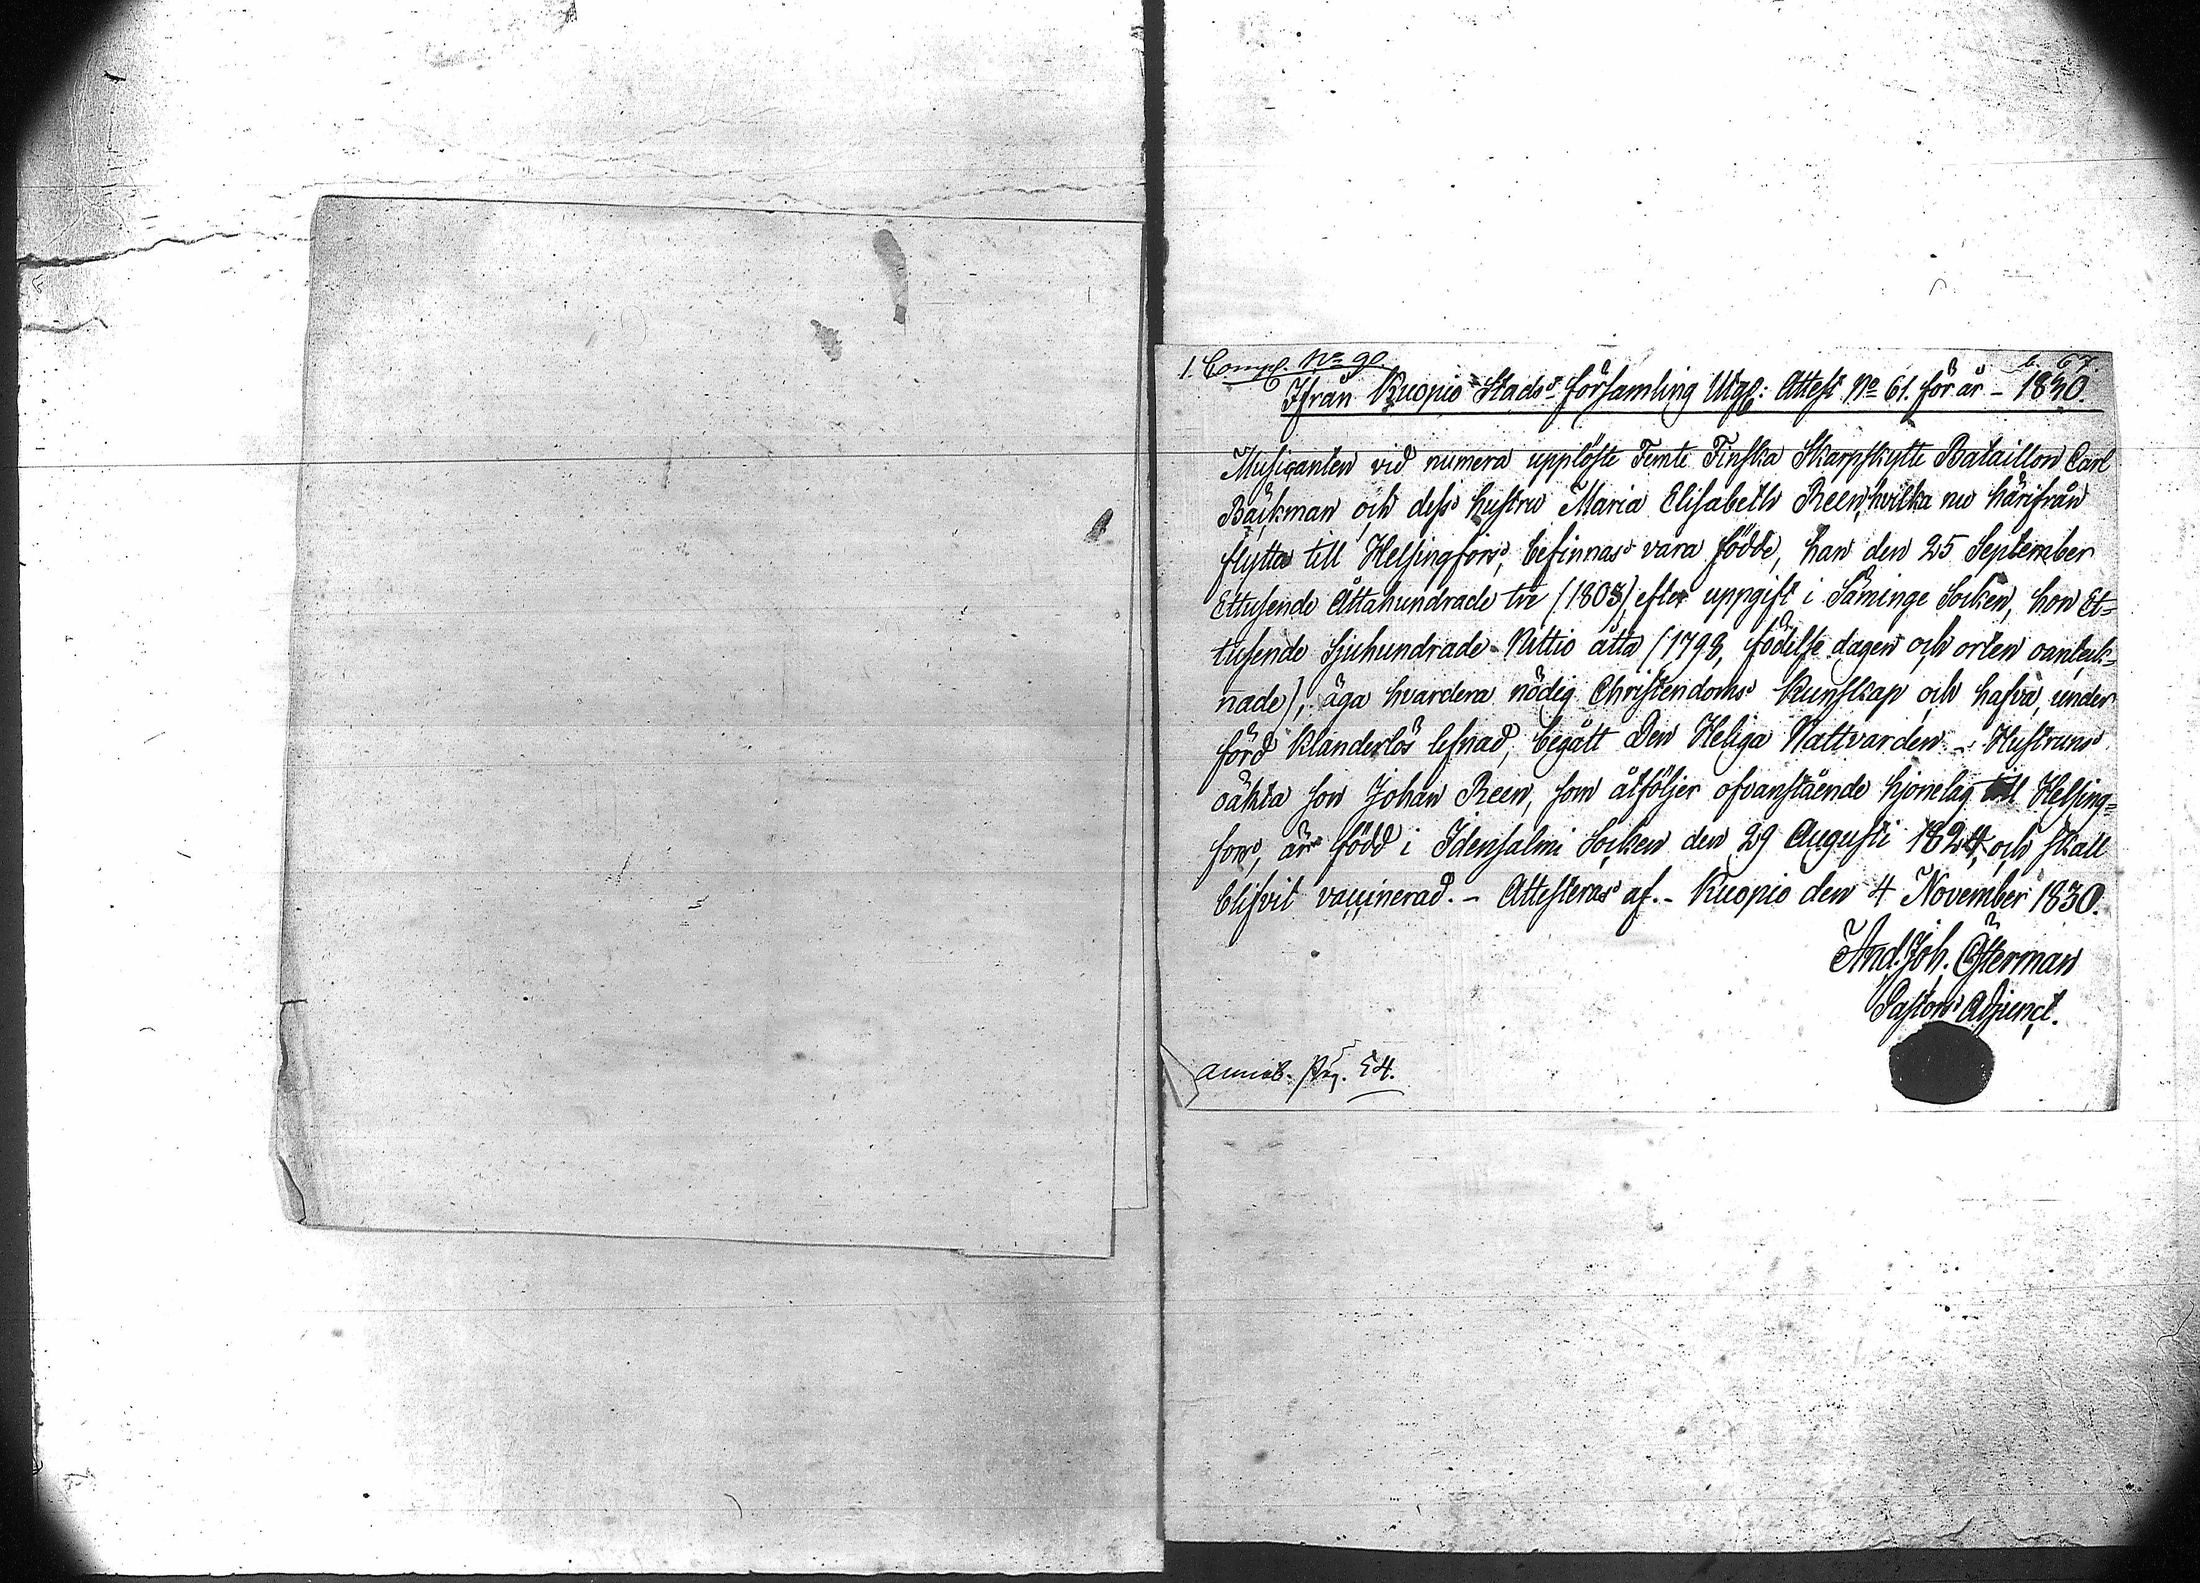 1. Comp. No 90.
b. 67
Ifrån Kuopio Stads församling Utgf: Attest No 61. för år - 1830.
Musicanten vid numera upplöste Femte Finska Skarpskytte Bataillon Carl
Bäckman och dess hustru Maria Elisabeth Reen, hvilka nu härifrån
flytta till Helsingfors, befinnas vara födde, han den 25 September
Ettusende Åttahundrade tre (1803) efter uppgift i Säminge Socken, hon Et=
tusende Sjuhundrade Nittio åtta (1798, födelse dagen och orten oanteck=
nade), äga hvardera nödig Christendoms Kunskap och hafva, under
förd klanderlös lefnad, begått Den Heliga Nattvarden. - Hustruns
oäkta son Johan Reen, som åtföljer ofvanstående hjonelag till Helsing=
fors, är född i Idensalmi Socken den 29 Augusti 1824, och skall
blifvit vaccinerad. - Attesteras af. - Kuopio den 4 November 1830.
And. Joh. Österman
Pastors Adjunct.
Pag. 54.